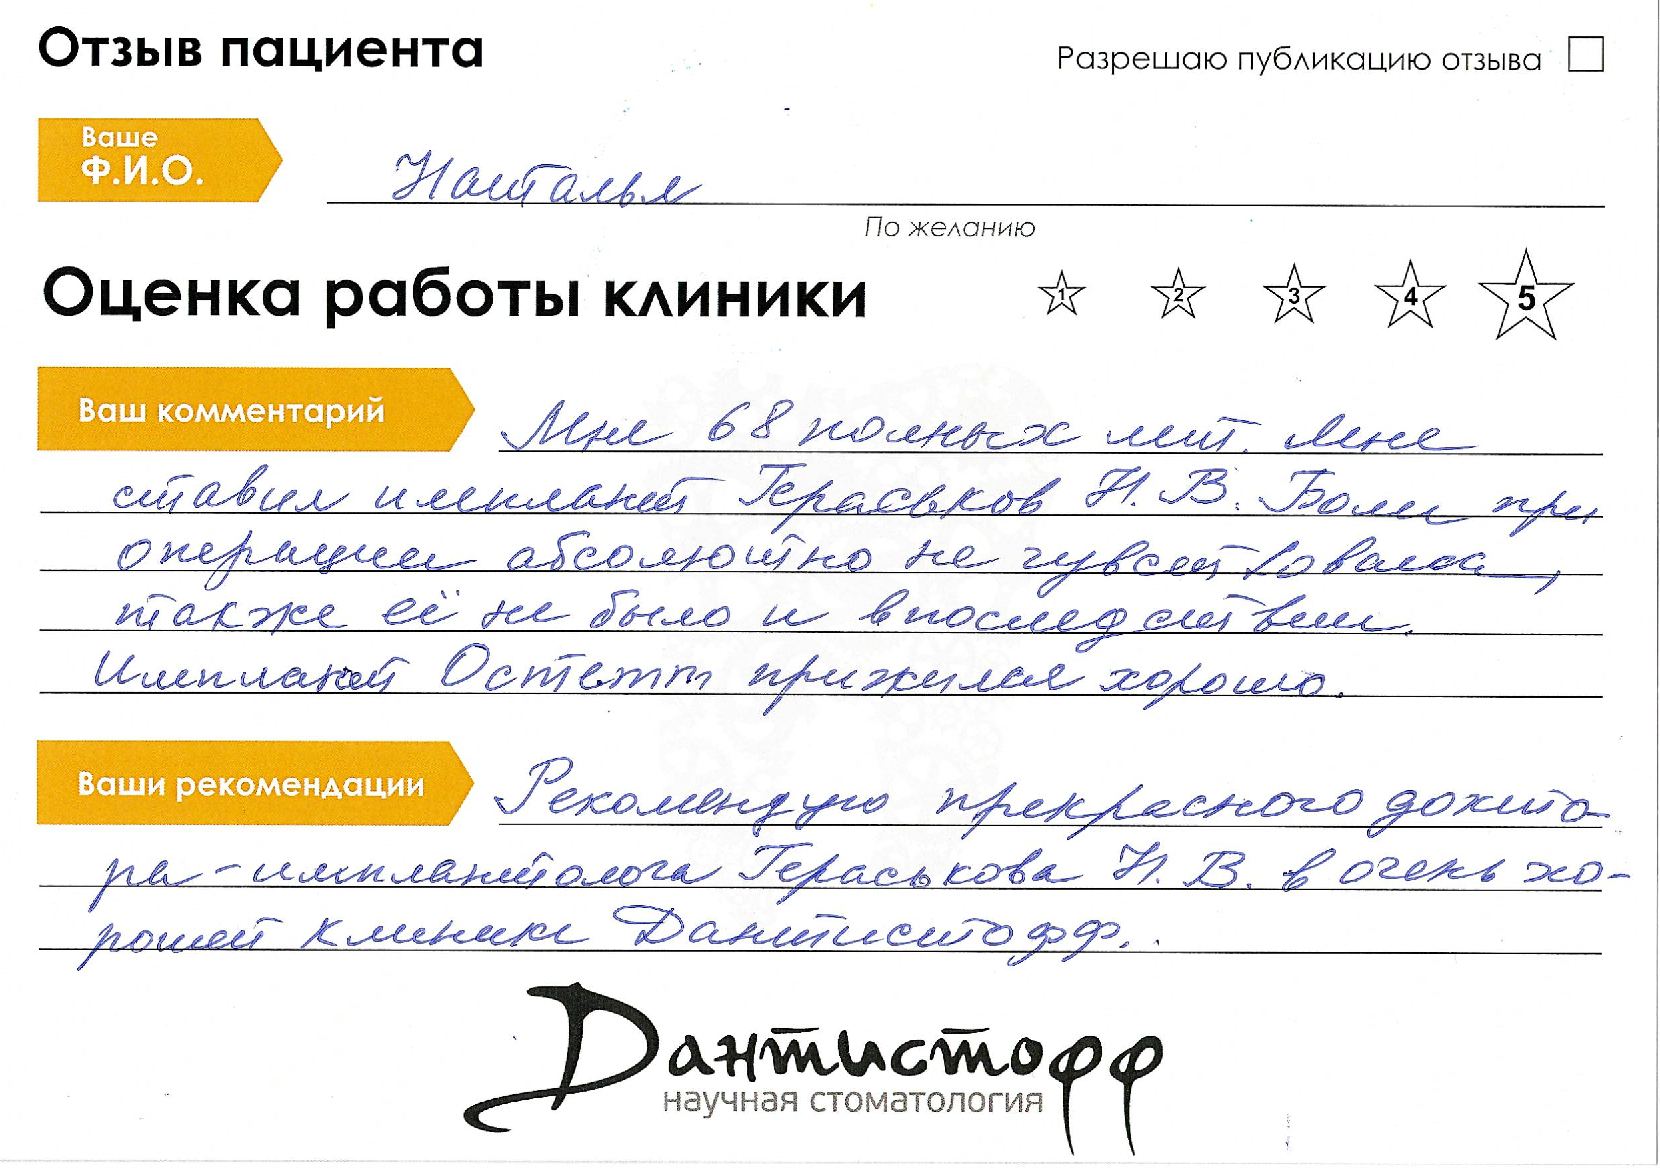 Отзыв пациента
Разрешаю публикацию отзыва
Ваше
Ф.И.О.
Наталья
По желанию
Оценка работы клиники
1 2 3 4 5
Ваш комментарий
Мне 68 полных лет. Мне
ставил имплант Гераськов Н. В. Боли при
операции абсолютно не чувствовала,
также её не было и впоследствии.
Имплант Остетт прижился хорошо.
Ваши рекомендации
Рекомендую прекрасного докто-
ра-имплантолога Гераськова Н. В. в очень хо-
рошей клинике Дантистофф.
Дантистофф
научная стоматология